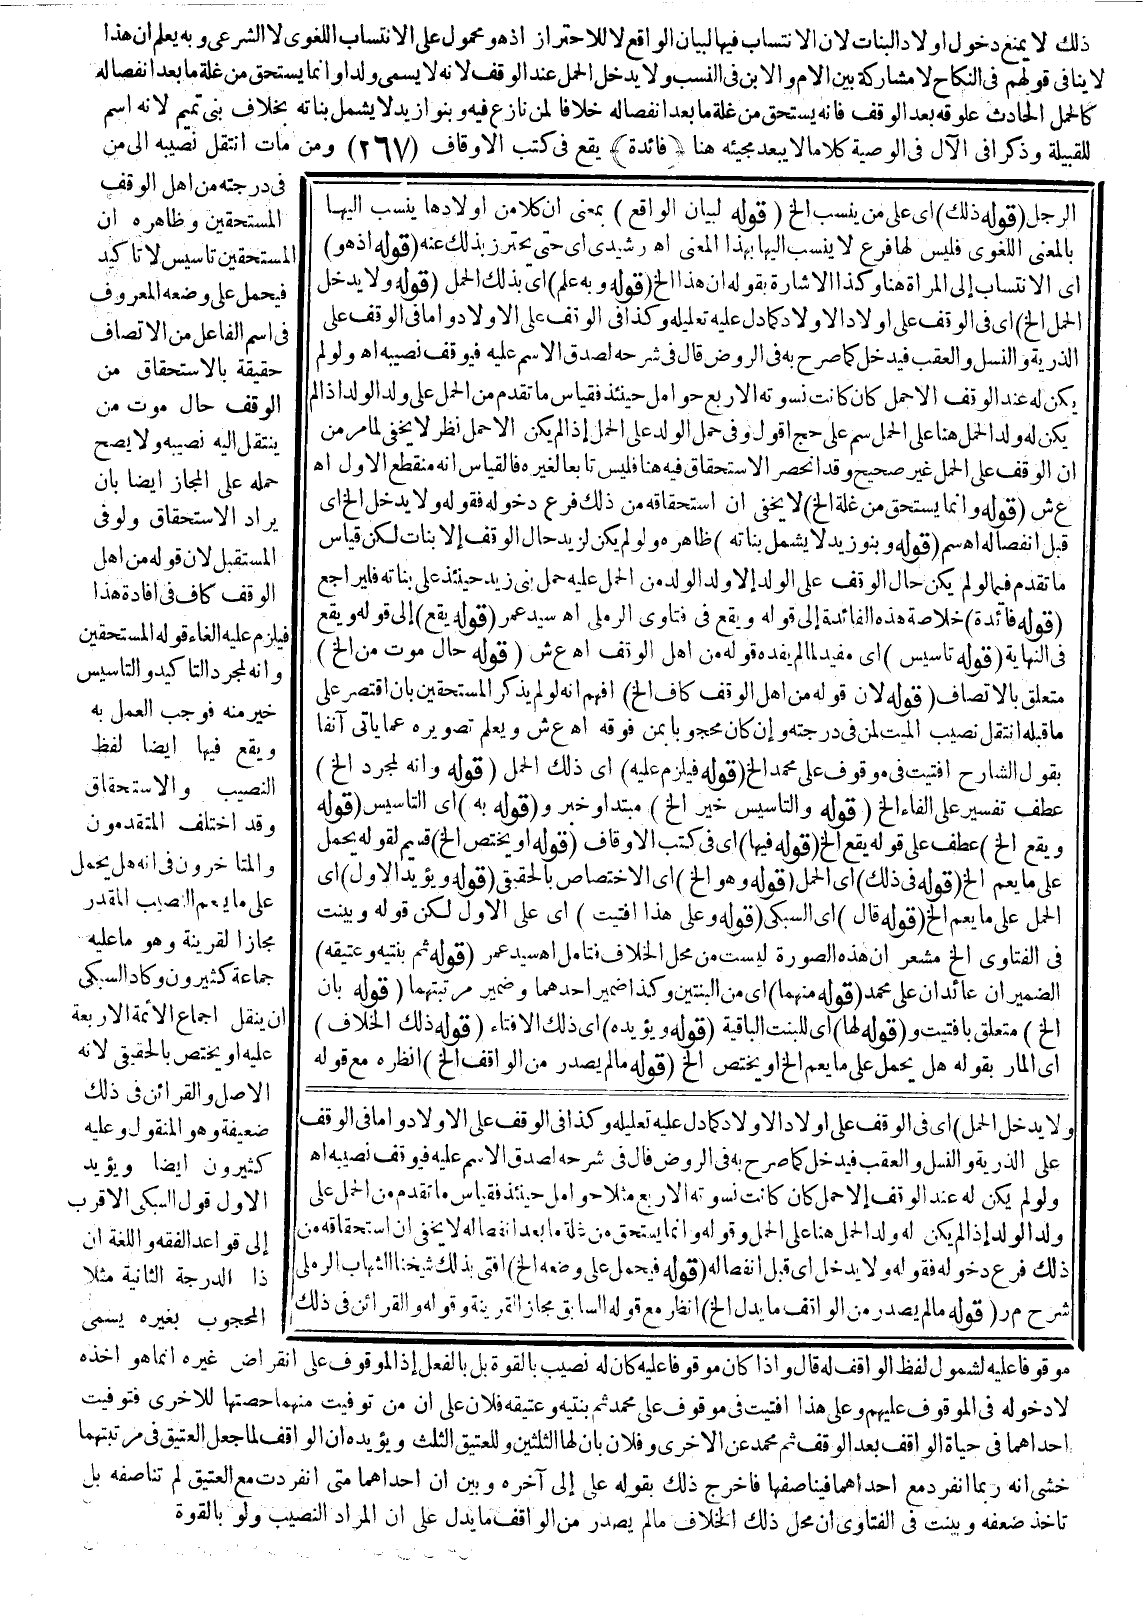 ذلك لا يمنع دخول اولاد البنات لان الانتساب فيها لبيان الواقع لا للاحتراز اذ هو محمول على الانتساب اللغوى لا الشرعى و به يعلم ان هذا
لا ينافى قولهم فى النكاح لا مشاركة بين الام والابن فى النسب ولا يدخل الحمل عند الوقف لانه لا يسمى ولدا وانما يستحق من غلة ما بعد انفصاله
كالحمل الحادث علوقه بعد الوقف فانه يستحق من غلة ما بعد انفصاله خلافا لمن نازع فيه و بنو ازيد لا يشمل بناته بخلاف بنى تميم لانه اسم
للقبيلة وذكرا فى الآل فى الوصية كلاما لا يبعد مجيئه هنا ﴿فائدة﴾ يقع فى كتب الاوقاف (٢٦٧) ومن مات انتقل نصيبه الى من
فى درجته من اهل الوقف
المستحقين وظاهره ان
المستحقين تاسيس لا تاكيد
فيحمل على وضعه المعروف
فى اسم الفاعل من الاتصاف
حقيقة بالاستحقاق من
الوقف حال موت من
ينتقل اليه نصيبه ولا يصح
حمله على المجاز ايضا بان
يراد الاستحقاق ولو فى
المستقبل لان قوله من اهل
الوقف كاف فى افادة هذا
فيلزم عليه الغاء قوله المستحقين
وانه لمجرد التاكيد والتاسيس
خير منه فوجب العمل به
ويقع فيها ايضا لفظ
النصيب والاستحقاق
وقد اختلف المتقدمون
والمتاخرون فى انه هل يحمل
على ما يعم النصيب المقدر
مجازا لقرينة وهو ما عليه
جماعة كثيرون وكاد السبكى
ان ينقل اجماع الأئمة الاربعة
عليه او يختص بالحقيقى لانه
الاصل والقرائن فى ذلك
ضعيفة وهو المنقول وعليه
كثيرون ايضا ويؤيد
الاول قول السبكى الاقرب
إلى قواعد الفقه واللغة ان
ذا الدرجة الثانية مثلا
المحجوب بغيره يسمى
الرجل (قوله ذلك) اى على من ينسب الخ (قوله لبيان الواقع) بمعنى ان كلا من اولادها ينسب اليها
بالمعنى اللغوى فليس لها فرع لا ينسب اليها بهذا المعنى اه رشيدى اى حتى يحترز بذلك عنه (قوله اذ هو)
اى الانتساب إلى المراة هنا وكذا الاشارة بقوله ان هذا الخ (قوله وبه علم) اى بذلك الحمل (قوله ولا يدخل
الحمل الخ) اى فى الوقف على اولاد الاولاد كما دل عليه تعليله وكذا فى الوقف على الاولاد واما فى الوقف على
الذرية والنسل والعقب فيدخل كما صرح به فى الروض قال فى شرحه لصدق الاسم عليه فيوقف نصيبه اه ولو لم
يكن له عند الوقف الا حمل كان كانت نسوته الاربع حوامل حينئذ فقياس ما تقدم من الحمل على ولد الولد اذا لم
يكن له ولد الحمل هنا على الحمل سم على حج اقول وفى حمل الولد على الحمل إذا لم يكن الا حمل نظر لا يخفى لما مر من
ان الوقف على الحمل غير صحيح وقد انحصر الاستحقاق فيه هنا فليس تابعا لغيره فالقياس انه منقطع الاول اه
ع ش (قوله وانما يستحق من غلة الخ) لا يخفى ان استحقاقه من ذلك فرع دخوله فقوله ولا يدخل الخ اى
قبل انفصاله اه سم (قوله وبنو زيد لا يشمل بناته) ظاهره ولو لم يكن لزيد حال الوقف إلا بنات لكن قياس
ما تقدم فيما لو لم يكن حال الوقف على الولد إلا ولد الولد من الحمل عليه حمل بنى زيد حينئذ على بناته فليراجع
(قوله فائدة) خلاصة هذه الفائدة إلى قوله ويقع فى فتاوى الرملى اه سيد عمر (قوله يقع) إلى قوله ويقع
فى النهاية (قوله تاسيس) اى مفيد لما لم يفده قوله من اهل الوقف اه ع ش (قوله حال موت من الخ)
متعلق بالاتصاف (قوله لان قوله من اهل الوقف كاف الخ) افهم انه لو لم يذكر المستحقين بان اقتصر على
ما قبله انتقل نصيب الميت لمن فى درجته وإن كان محجوبا بمن فوقه اه ع ش ويعلم تصويره عما ياتى آنفا
بقول الشارح افتيت فى موقوف على محمد الخ (قوله فيلزم عليه) اى ذلك الحمل (قوله وانه لمجرد الخ)
عطف تفسير على الغاء الخ (قوله والتاسيس خير الخ) مبتدا وخبر و(قوله به) اى التاسيس (قوله
ويقع الخ) عطف على قوله يقع الخ (قوله فيها) اى فى كتب الاوقاف (قوله او يختص الخ) قديم لقوله يحمل
على ما يعم الخ (قوله فى ذلك) اى الحمل (قوله وهو الخ) اى الاختصاص بالحقيقى (قوله ويؤيد الاول) اى
الحمل على ما يعم الخ (قوله قال) اى السبكى (قوله وعلى هذا افتيت) اى على الاول لكن قوله وبينت
فى الفتاوى الخ مشعر ان هذه الصورة ليست من محل الخلاف فتامل اه سيد عمر (قوله ثم بنتيه وعتيقه)
الضميران عائدان على محمد (قوله منهما) اى من البنتين وكذا ضمير احدهما وضمير مرتبتهما (قوله بان
الخ) متعلق بافتيت و(قوله لها) اى للبنت الباقية (قوله ويؤيده) اى ذلك الافتاء (قوله ذلك الخلاف)
اى المار بقوله هل يحمل على ما يعم الخ او يختص الخ (قوله ما لم يصدر من الواقف الخ) انظره مع قوله
ولا يدخل الحمل) اى فى الوقف على اولاد الاولاد كما دل عليه تعليله وكذا فى الوقف على الاولاد واما فى الوقف
على الذرية والنسل والعقب فيدخل كما صرح به فى الروض قال فى شرحه لصدق الاسم عليه فيوقف نصيبه اه
ولو لم يكن له عند الوقف إلا حمل كان كانت نسوته الاربع مثلا حوامل حينئذ فقياس ما تقدم من الحمل على
ولد الولد إذا لم يكن له ولد الحمل هنا على الحمل وقوله وانما يستحق من غلة ما بعد انفصاله لا يخفى ان استحقاقه من
ذلك فرع دخوله فقوله ولا يدخل اى قبل انفصاله (قوله فيحمل على وضعه الخ) افتى بذلك شيخنا الشهاب الرملى
شرح مر (قوله ما لم يصدر من الواقف ما يدل الخ) انظر مع قوله السابق مجازا لقرينة وقوله والقرائن فى ذلك
موقوفا عليه لشمول لفظ الواقف له قال واذا كان موقوفا عليه كان له نصيب بالقوة بل بالفعل إذ الموقوف على انقراض غيره انما هو اخذه
لا دخوله فى الموقوف عليهم وعلى هذا افتيت فى موقوف على محمد ثم بنتيه وعتيقه فلان على ان من توفيت منهما حصتها للاخرى فتوفيت
احداهما فى حياة الواقف بعد الوقف ثم محمد عن الاخرى وفلان بان لها الثلثين وللعتيق الثلث ويؤيده ان الواقف لما جعل العتيق فى مرتبتهما
خشى انه ربما انفرد مع احداهما فيناصفها فاخرج ذلك بقوله على إلى آخره وبين ان احداهما متى انفردت مع العتيق لم تناصفه بل
تاخذ ضعفه وبينت فى الفتاوى ان محل ذلك الخلاف ما لم يصدر من الواقف ما يدل على ان المراد النصيب ولو بالقوة